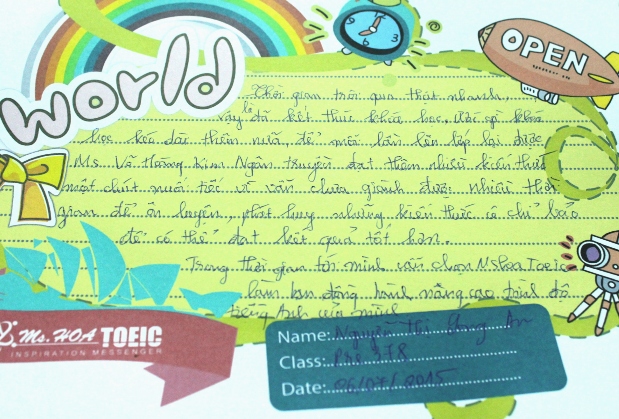 world
OPEN
Thời gian trôi qua thật nhanh,
vậy là đã kết thúc khóa học. Ước gì khóa
học kéo dài thêm nữa, để mỗi lần lên lớp lại được
Ms. Vũ Hoàng Kim Ngân truyền đạt thêm nhiều kiến thức
một chút nuối tiếc vì vẫn chưa giành được nhiều thời
gian để ôn luyện, phát huy những kiến thức cô chỉ bảo
để có thể đạt kết quả tốt hơn.
Trong thời gian tới mình vẫn chọn Ms Hoa Toeic
làm bạn đồng hành nâng cao trình độ
tiếng Anh của mình
Ms. HOA TOEIC
INSPIRATION MESSENGER
Name: Nguyễn Thị An
Class: Pre
Date: 26/07/2015